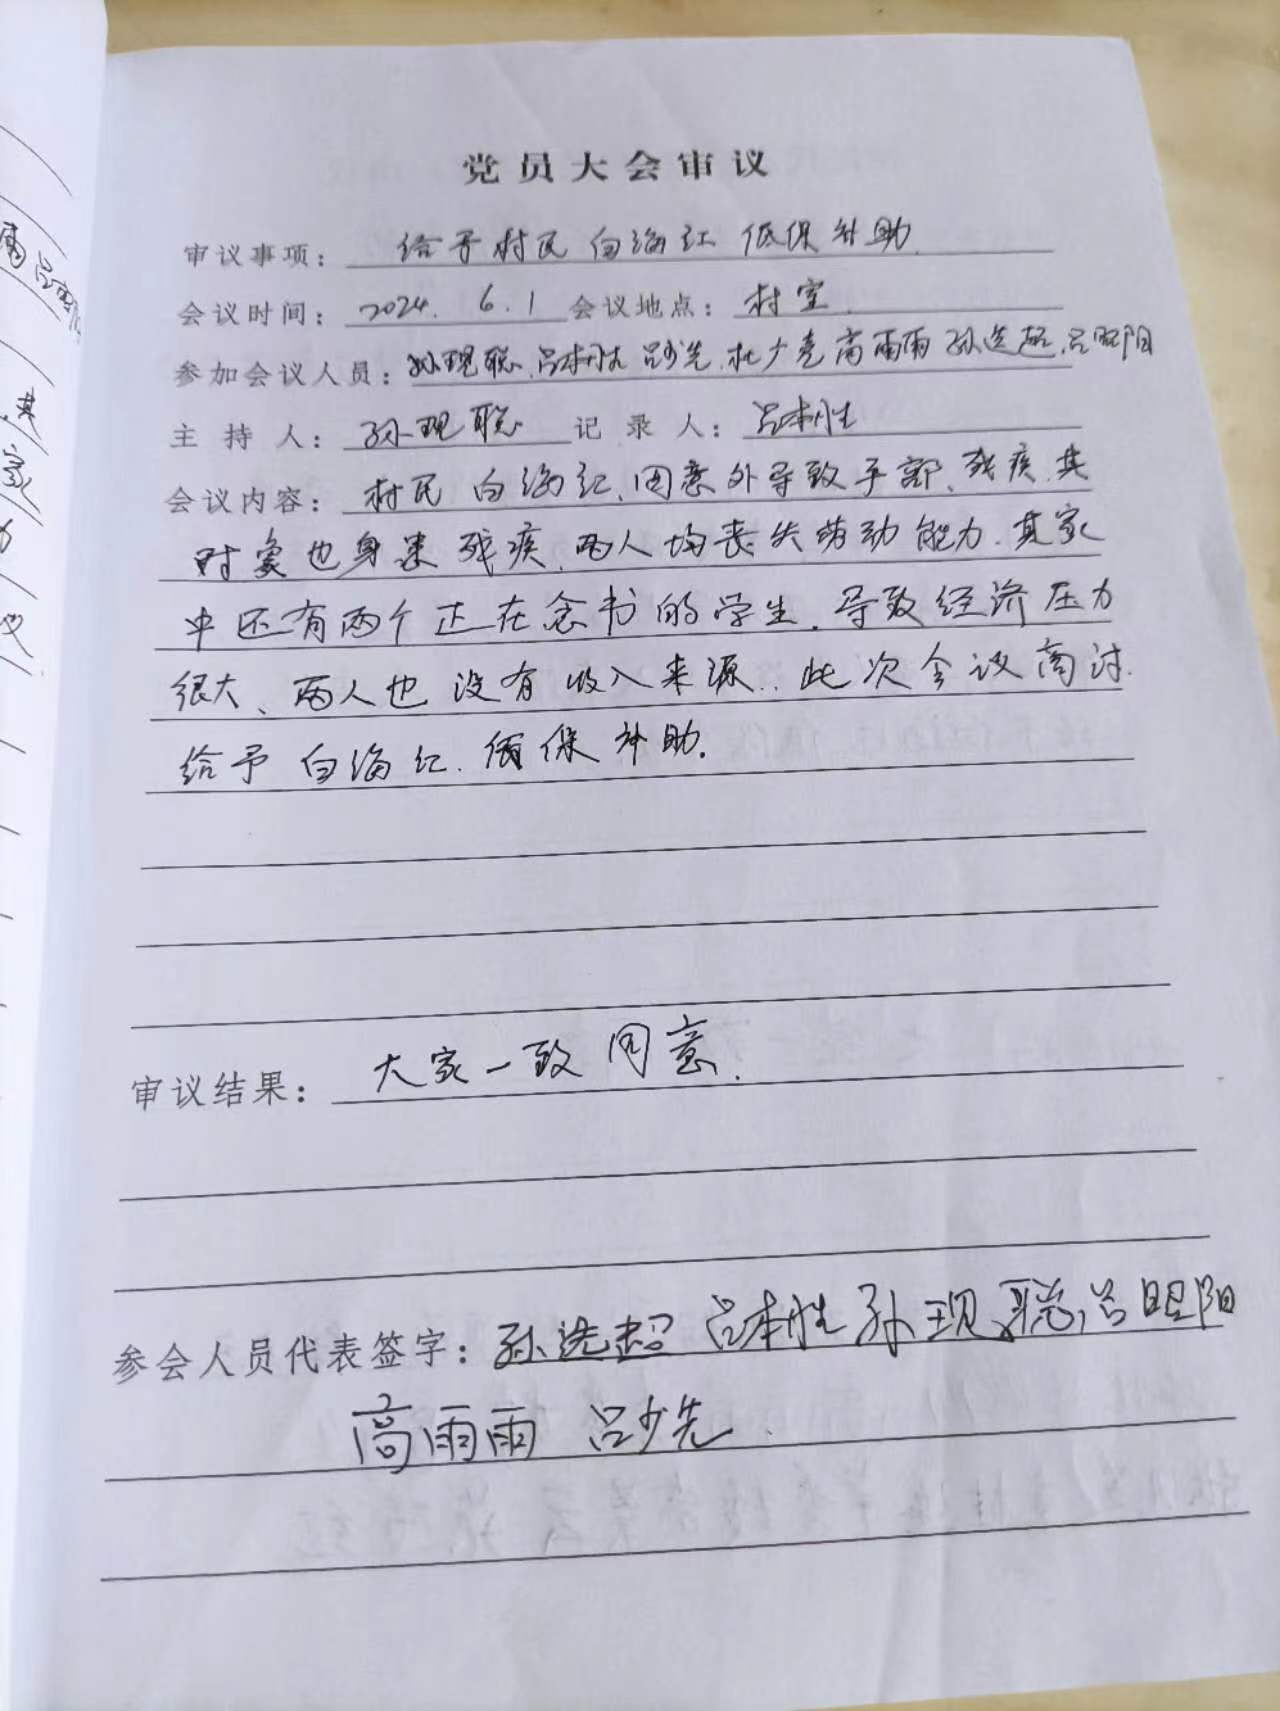 党员大会审议
审议事项： 给予村民白海红低保补助.
会议时间： 2024. 6.1 会议地点： 村室.
参加会议人员： 孙现聪.吕本胜 吕少先.杜少亮 高雨雨 孙选超.吕昭阳
主 持 人： 孙现聪 记 录 人： 吕本胜
会议内容： 村民白海红、因意外导致手部、残疾.其
对象也身患残疾.两人均丧失劳动能力.其家
中还有两个正在念书的学生.导致经济压力
很大、两人也没有收入来源.此次会议商讨.
给予白海红.低保补助.
审议结果： 大家一致同意.
参会人员代表签字： 孙选超 吕本胜 孙现聪 吕昭阳
高雨雨 吕少先.